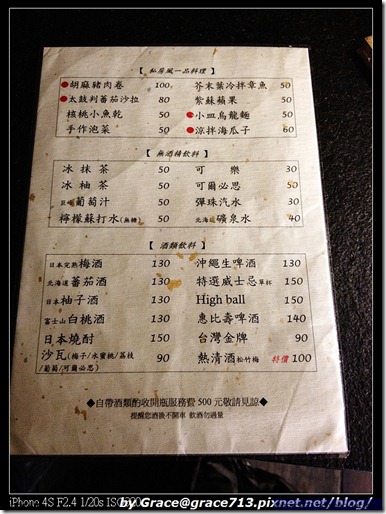 【 私房風一品料理 】
胡麻豬肉卷 100 芥末葉冷拌章魚 50
太鼓判蕃茄沙拉 80 紫蘇蘋果 50
核桃小魚乾 50 小皿烏龍麵 50
手作泡菜 50 涼拌海瓜子 60
【 無酒精飲料 】
冰抹茶 50 可樂 30
冰柚茶 50 可爾必思 50
巨峰葡萄汁 50 彈珠汽水 30
檸檬蘇打水(無糖) 50 北海道礦泉水 40
【 酒類飲料 】
日本完熟梅酒 130 沖繩生啤酒 130
北海道蕃茄酒 130 特選威士忌單杯 150
日本柚子酒 130 High ball 150
富士山白桃酒 130 惠比壽啤酒 140
日本燒酎 150 台灣金牌 90
沙瓦(梅子/水蜜桃/荔枝 90 熱清酒松竹梅 特價 100
/葡萄/可爾必思)
◆自帶酒類酌收開瓶服務費 500 元敬請見諒◆
提醒您酒後不開車 飲酒勿過量
iPhone 4S F2.4 1/20s ISO
by Grace@grace713.pixnet.net/blog/